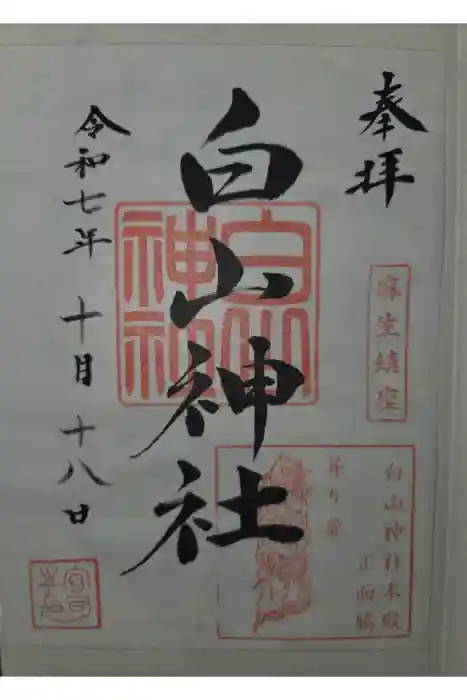 奉拝
麻生鎮座
白山神社本殿
正面脇
昇り龍
白山神社
白山神社
令和七年 十月 十八日
宮司之印